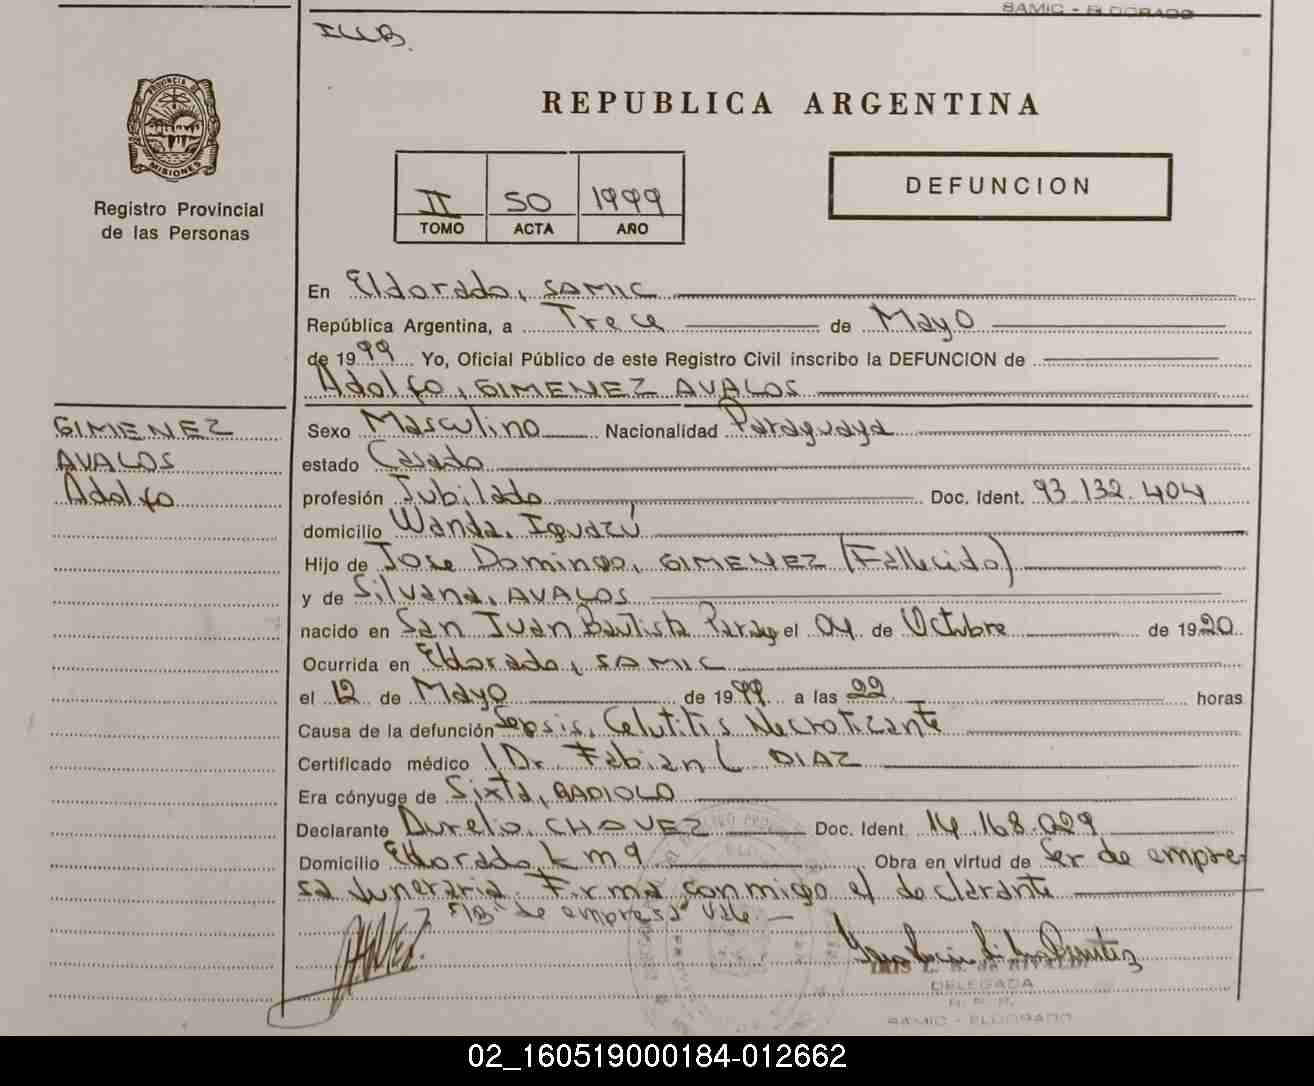 SAMIC - ELDORADO
REPUBLICA ARGENTINA
PROVINCIA DE MISIONES
Registro Provincial
de las Personas
II 50 1999
TOMO ACTA AÑO
DEFUNCION
En Eldorado, SAMIC
República Argentina, a Trece de Mayo
de 1999 Yo, Oficial Público de este Registro Civil inscribo la DEFUNCION de
Adolfo, GIMENEZ AVALOS
GIMENEZ
AVALOS
Adolfo
Sexo Masculino Nacionalidad Paraguaya
estado Casado
profesión Jubilado Doc. Ident. 93.132.404
domicilio Wanda, Iguazú
Hijo de Jose Domingo, GIMENEZ (Fallecido)
y de Silvana, AVALOS
nacido en San Juan Bautista Parag el 04 de Octubre de 1920
Ocurrida en Eldorado, SAMIC
el 12 de Mayo de 1999 a las 22 horas
Causa de la defunción Sepsis, Celutitis Necrotizante
Certificado médico Dr. Fabian L DIAZ
Era cónyuge de Sixta, BADIOLO
Declarante Aurelio, CHAVEZ Doc. Ident. 14.168.029
Domicilio Eldorado km 9 Obra en virtud de Ser de empre-
sa funeraria. Firma conmigo el declarante
"de empresa" Vale
DELEGADA
SAMIC - ELDORADO
02_160519000184-012662